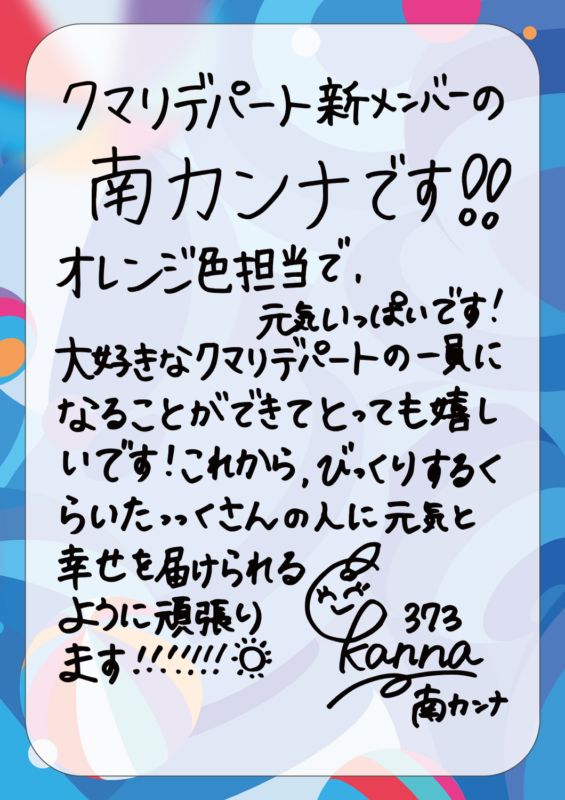 クマリデパート新メンバーの
南カンナです!!
オレンジ色担当で、
元気いっぱいです!
大好きなクマリデパートの一員に
なることができてとっても嬉し
いです!これから,びっくりするく
らいたっっくさんの人に元気と
幸せを届けられる
ように頑張り
ます!!!!!!!
373
Kanna
南カンナ